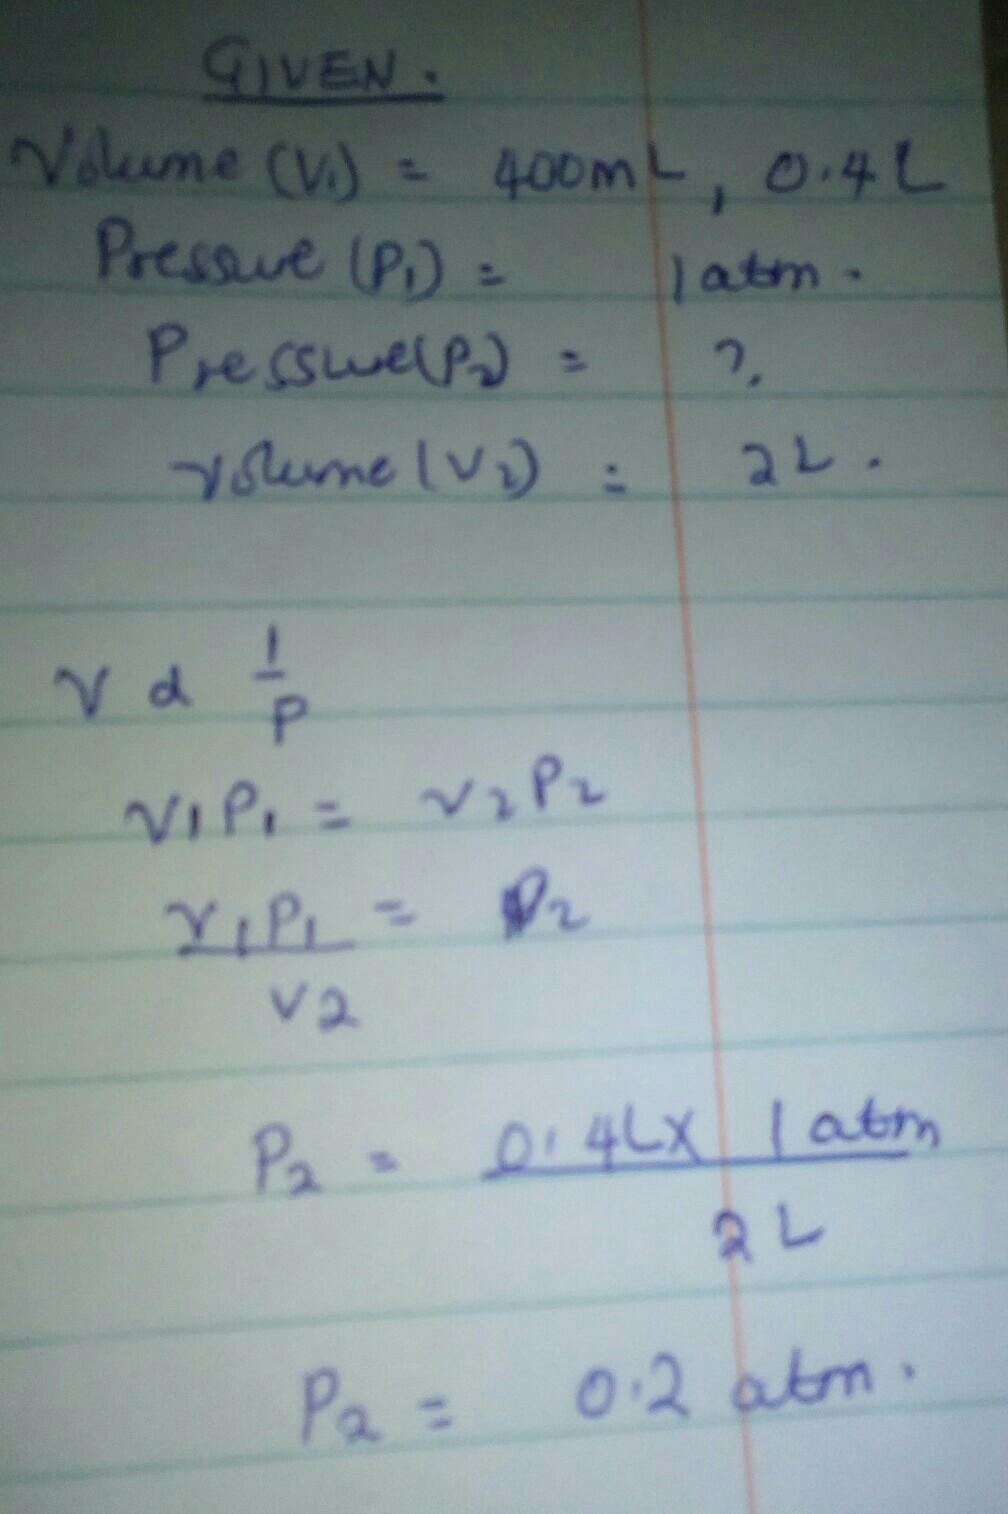 GIVEN.
Volume (V1) = 400mL, 0.4L
Pressure (P1) = 1 atm.
Pressure(P2) = ?.
Volume (V2) = 2L.
V α 1/P
V1P1 = V2P2
V1P1/V2 = P2
P2 = 0.4L X 1 atm/2L
P2 = 0.2 atm.